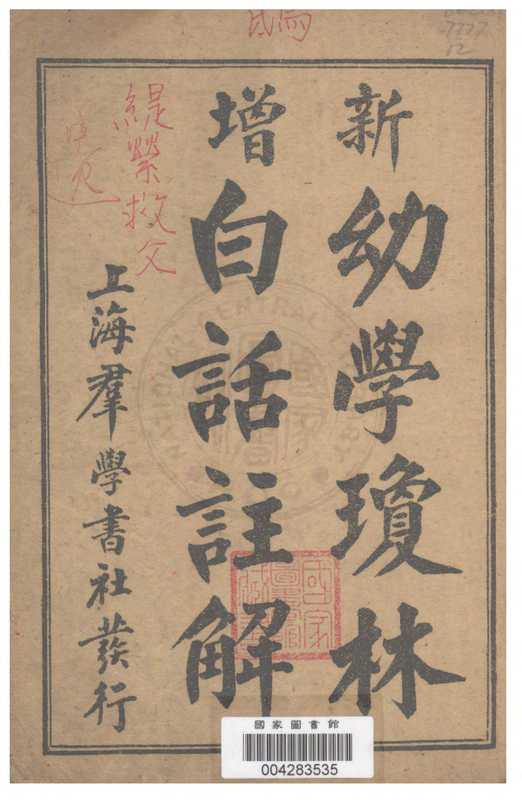 新
幼學瓊林
增
白話註解
上海羣學書社發行
緹縈救父
國家圖書館
004283535